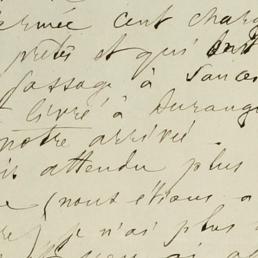 armée cent charg
prêts et qui ont
passage à Sances
livré à Durang
notre arrivée.
attendu plus
(nous étions a
je n'ai plus